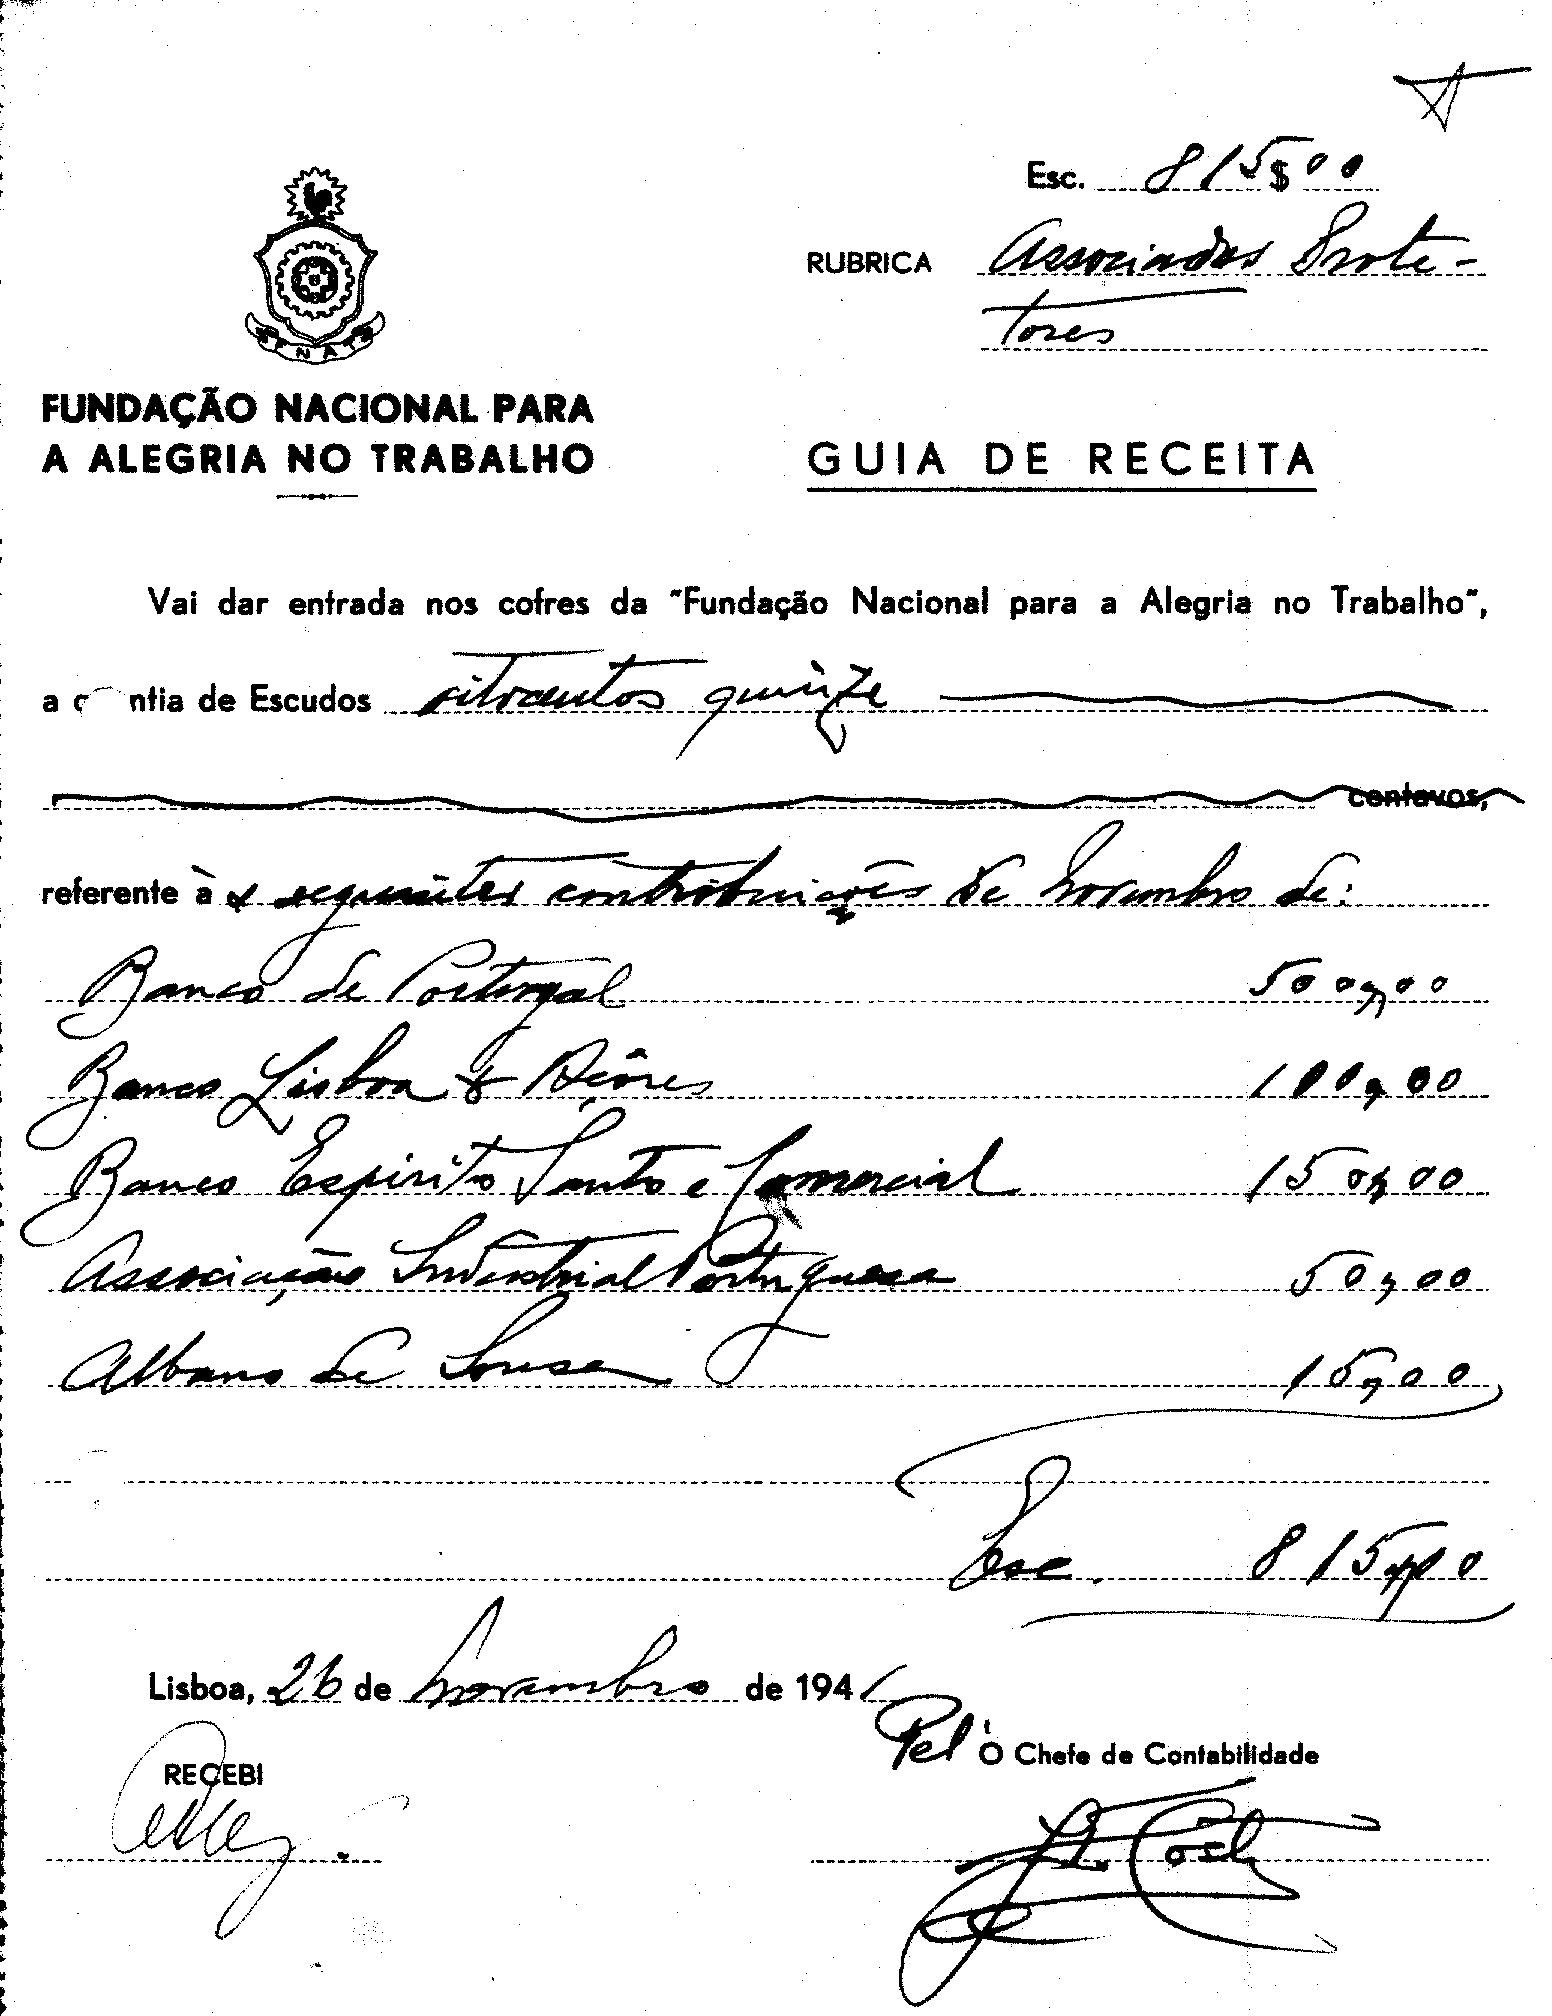 Esc. 815$00
RUBRICA Associados Prote-
tores
FENAT
FUNDAÇÃO NACIONAL PARA
A ALEGRIA NO TRABALHO
GUIA DE RECEITA
Vai dar entrada nos cofres da "Fundação Nacional para a Alegria no Trabalho",
a ntia de Escudos oitocentos quinze
centavos,
referente às seguintes contribuições de Novembro de:
Banco de Portugal 500,00
Banco Lisboa & Açôres 100,00
Banco Espirito Santo e Comercial 150,00
Associação Industrial Portuguesa 50,00
Albano de Sousa 15,00
Esc. 815,00
Lisboa, 26 de Novembro de 1941
Pel'O Chefe de Contabilidade
RECEBI
Costa